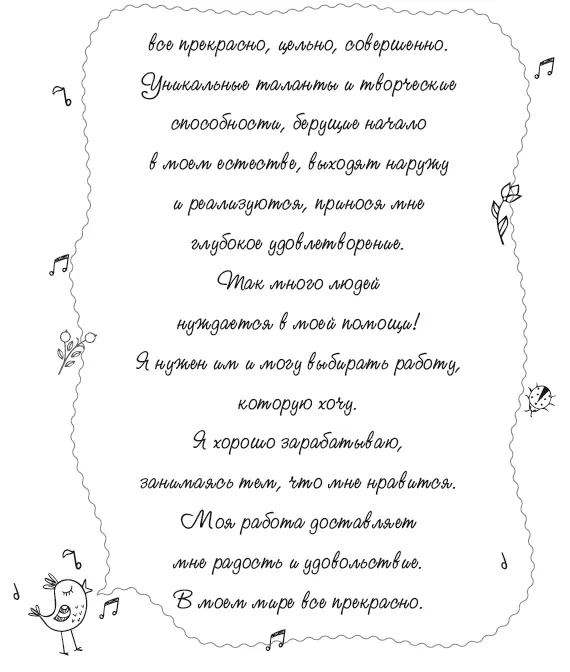 все прекрасно, цельно, совершенно.
Уникальные таланты и творческие
способности, берущие начало
в моем естестве, выходят наружу
и реализуются, принося мне
глубокое удовлетворение.
Так много людей
нуждается в моей помощи!
Я нужен им и могу выбирать работу,
которую хочу.
Я хорошо зарабатываю,
занимаясь тем, что мне нравится.
Моя работа доставляет
мне радость и удовольствие.
В моем мире все прекрасно.